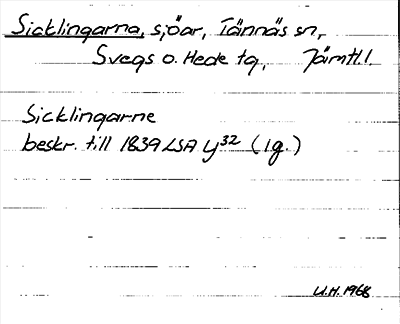 Sicklingarna, sjöar, Tännäs sn,
Svegs o. Hede tg, Jämtl.l.
Sicklingarne
beskr. till 1839 LSA y32 (1g.)
U.H. 1968